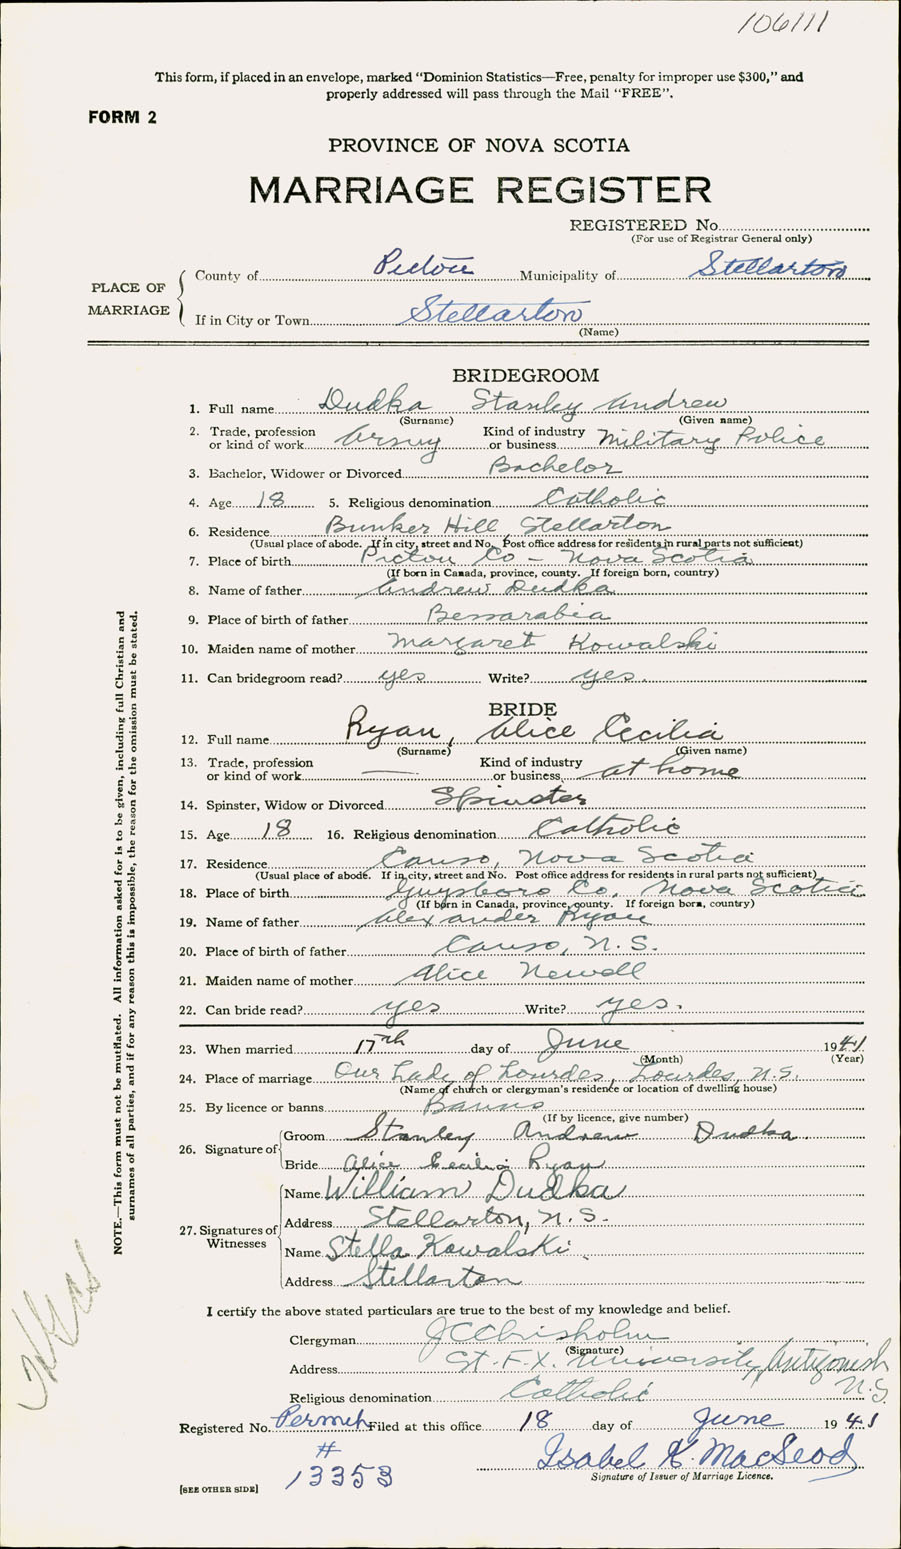 106111
This form, if placed in an envelope, marked "Dominion Statistics—Free, penalty for improper use $300," and
properly addressed will pass through the Mail "FREE".
FORM 2
PROVINCE OF NOVA SCOTIA
MARRIAGE REGISTER
REGISTERED No.
(For use of Registrar General only)
PLACE OF MARRIAGE
County of Pictou Municipality of Stellarton
If in City or Town Stellarton
(Name)
BRIDEGROOM
1. Full name Dudka Stanley Andrew
(Surname) (Given name)
2. Trade, profession or kind of work Army Kind of industry or business Military Police
3. Bachelor, Widower or Divorced Bachelor
4. Age 18 5. Religious denomination Catholic
6. Residence Bunker Hill Stellarton
(Usual place of abode. If in city, street and No. Post office address for residents in rural parts not sufficient)
7. Place of birth Pictou Co – Nova Scotia
(If born in Canada, province, county. If foreign born, country)
8. Name of father Andrew Dudka
9. Place of birth of father Bessarabia
10. Maiden name of mother Margaret Kowalski
11. Can bridegroom read? yes Write? yes.
BRIDE
12. Full name Ryan, Alice Cecilia
(Surname) (Given name)
13. Trade, profession or kind of work — Kind of industry or business at home
14. Spinster, Widow or Divorced Spinster
15. Age 18 16. Religious denomination Catholic
17. Residence Canso, Nova Scotia
(Usual place of abode. If in city, street and No. Post office address for residents in rural parts not sufficient)
18. Place of birth Guysboro Co, Nova Scotia
(If born in Canada, province, county. If foreign born, country)
19. Name of father Alexander Ryan
20. Place of birth of father Canso, N.S.
21. Maiden name of mother Alice Newell
22. Can bride read? yes Write? yes.
23. When married 17th day of June 1941
(Month) (Year)
24. Place of marriage Our Lady of Lourdes, Lourdes, N.S.
(Name of church or clergyman's residence or location of dwelling house)
25. By licence or banns Banns
(If by licence, give number)
26. Signature of
Groom Stanley Andrew Dudka.
Bride Alice Cecilia Ryan
27. Signatures of Witnesses
Name William Dudka
Address Stellarton, N.S.
Name Stella Kowalski
Address Stellarton
I certify the above stated particulars are true to the best of my knowledge and belief.
Clergyman J C Chisholm
(Signature)
Address St. F.X. University, Antigonish
N.S.
Religious denomination Catholic
Registered No. Permit Filed at this office 18 day of June 1941
#
13353
Isabel K. MacLeod
Signature of Issuer of Marriage Licence.
[SEE OTHER SIDE]
NOTE.—This form must not be mutilated. All information asked for is to be given, including full Christian and
surnames of all parties, and if for any reason this is impossible, the reason for the omission must be stated.